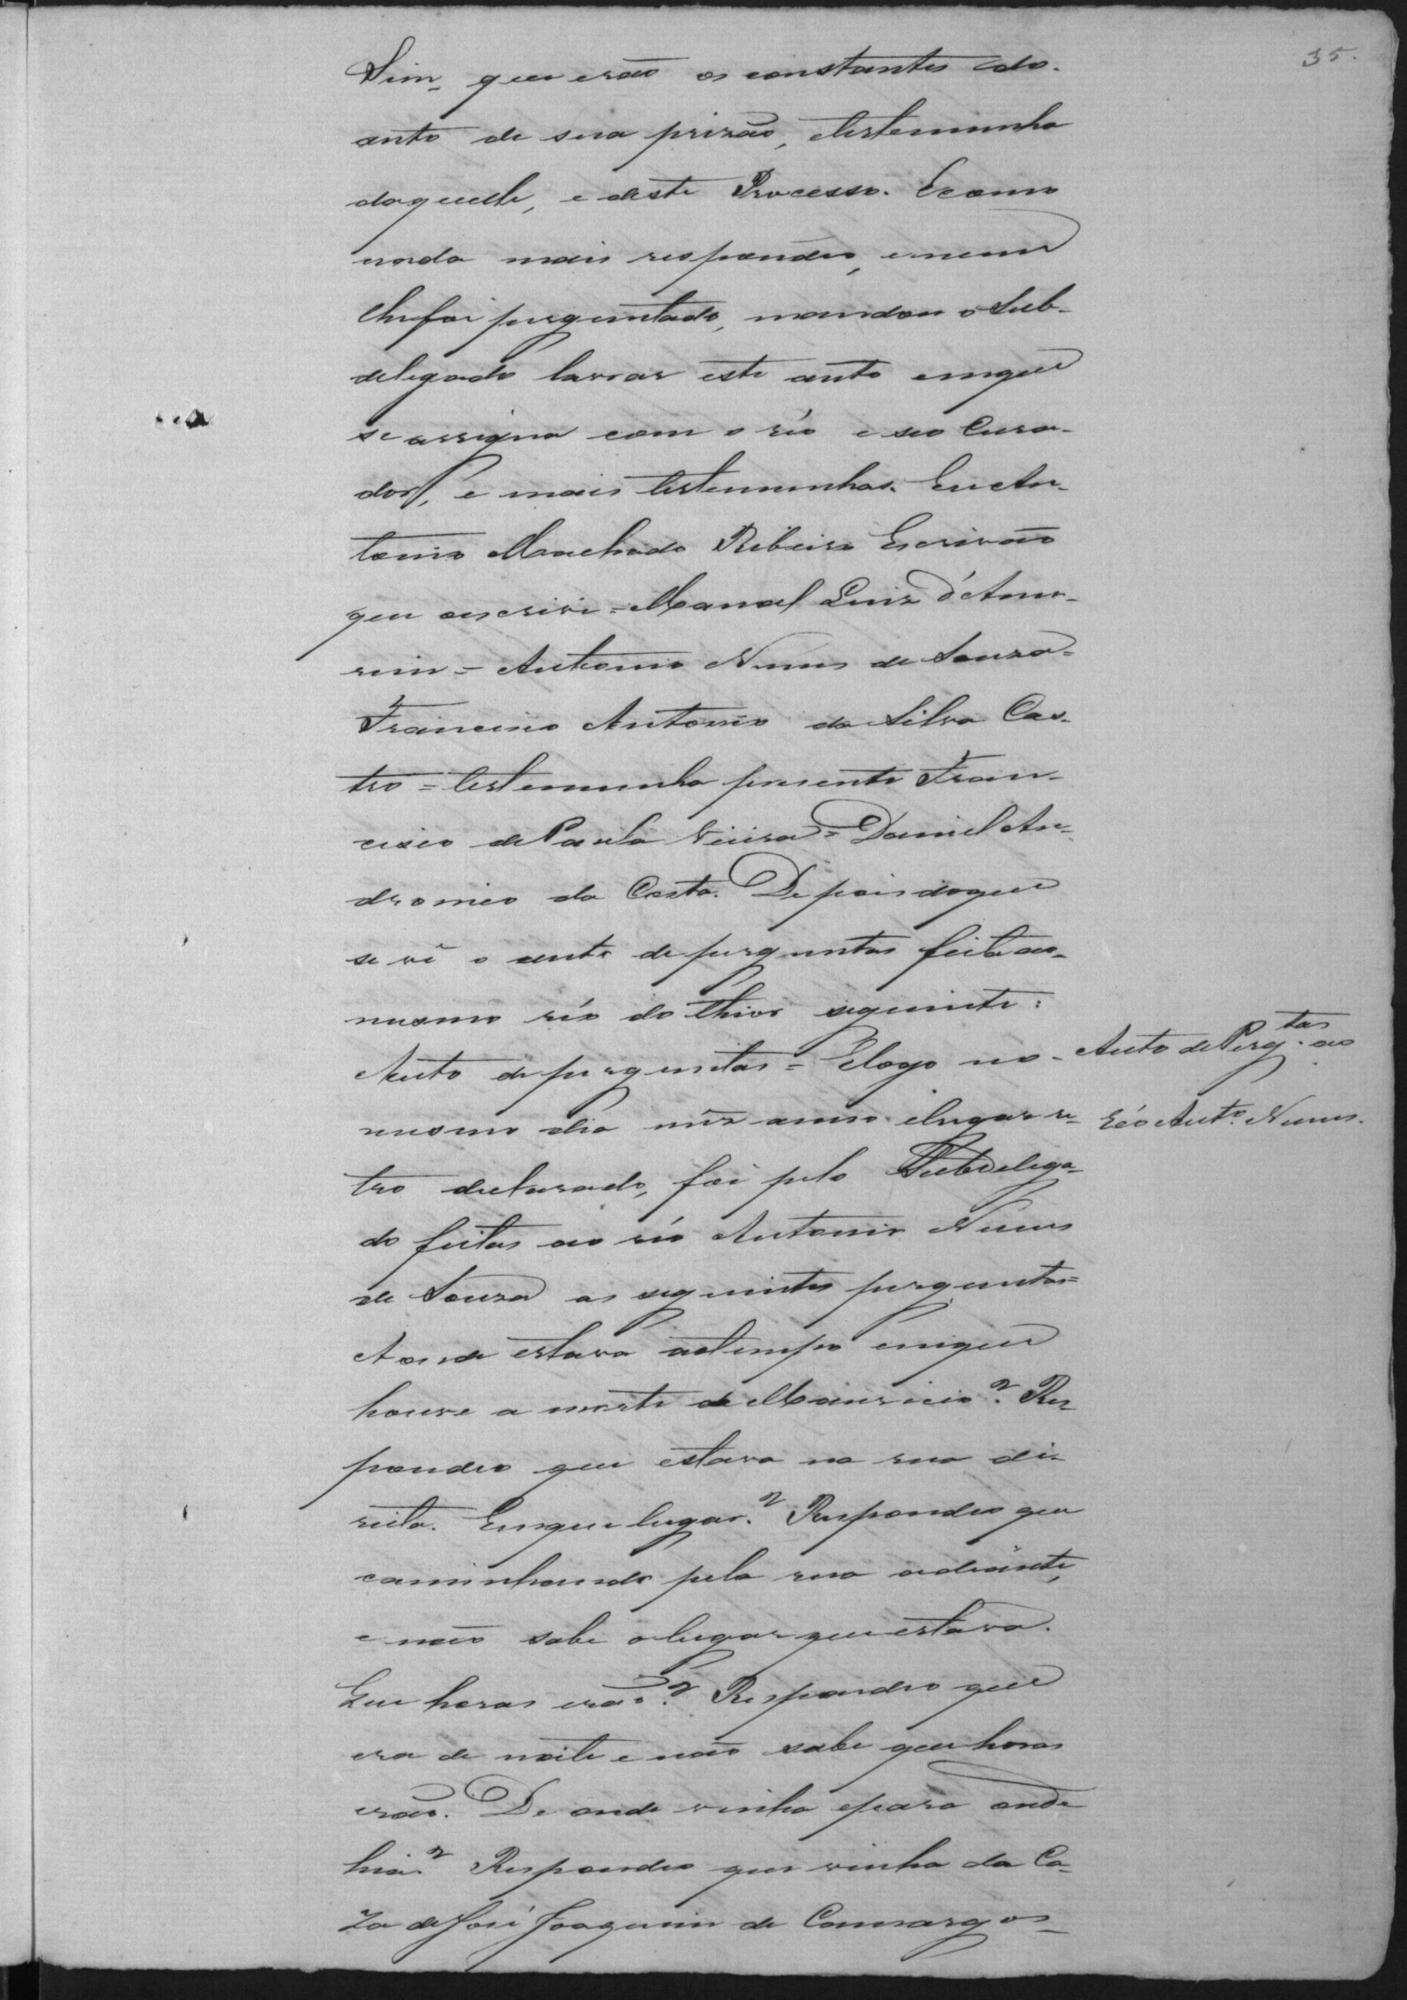 35.
Sim, que erão os constantes do
auto de sua prizão, etestemunha
daquelle, e deste Processo. Ecomo
nada mais respondeo, enem
lhefoi perguntado, mandou o Sub-
delegado lavrar este auto emque
se assigna com o réo e seo Cura-
dor, e mais testemunhas. Eu An-
tonio Machado Ribeiro Escrivão
que oescrivi = Manoel Luiz d'Amo-
rim = Antonio Nunes de Souza =
Francisco Antonio da Silva Cas-
tro = testemunha presente Fran-
cisco de Paula Vieira = Daniel An-
dronico da Costa. Depois doque
se vê o auto de perguntas feito ao
mesmo réo do theor seguinte:
Auto de perguntas = Elogo no
mesmo dia mez anno elugar re-
tro declarado, foi pelo Subdelega-
do feitas ao réo Antonio Nunes
de Souza as seguintes perguntas =
Aonde estava aotempo emque
houve a morte de Mauricio? Res-
pondeo que estava na rua di-
reita. Emque lugar? Respondeo que
caminhando pela rua adiante,
e não sabe olugar que estava.
Que horas erão? Respondeo que
era de noite e não sabe que horas
erão. De onde vinha epara onde
hia? Respondeo que vinha da Ca-
za de José Joaquim de Camargos
Auto de Perg.tas ao
Réo Ant.o Nunes.